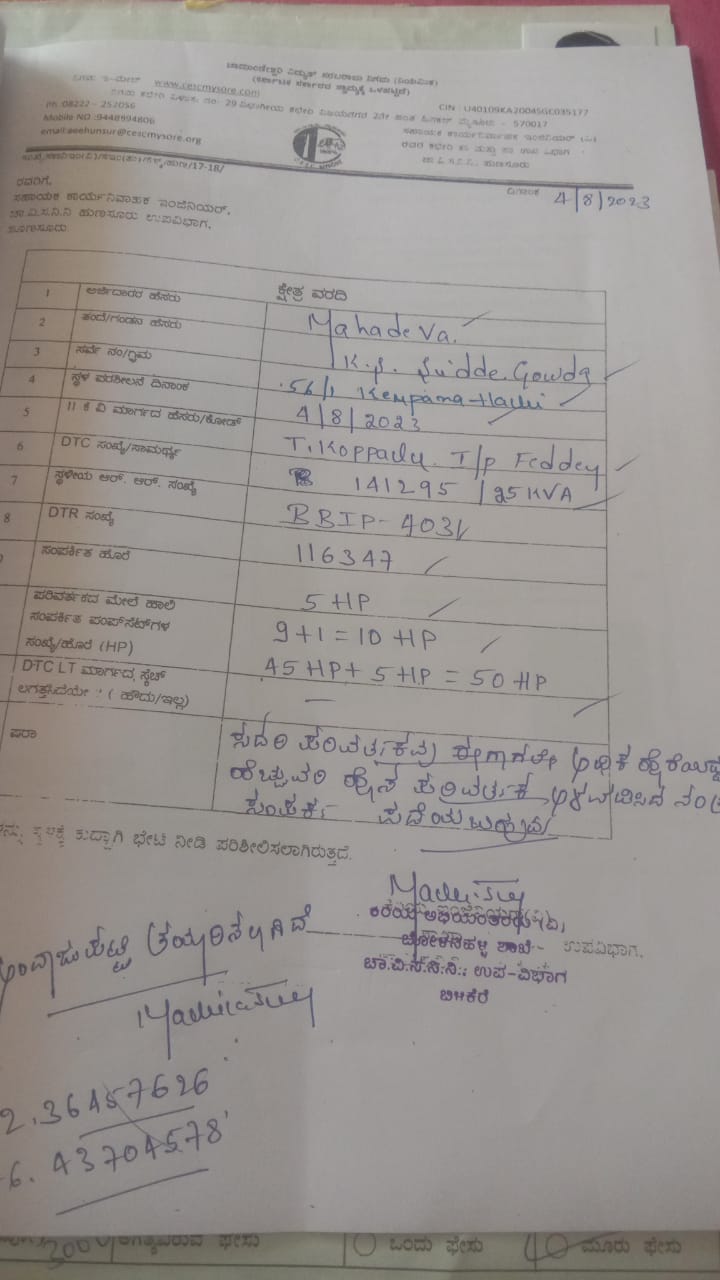 ಚಾಮುಂಡೇಶ್ವರಿ ವಿದ್ಯುತ್ ಸರಬರಾಜು ನಿಗಮ (ನಿಯಮಿತ)
(ಕರ್ನಾಟಕ ಸರ್ಕಾರದ ಸ್ವಾಮ್ಯಕ್ಕೆ ಒಳಪಟ್ಟಿದೆ)
www.cescmysore.com
CIN : U40109KA2004SGC035177
ನಿಗಮ ಕಛೇರಿ ವಿಳಾಸ: ನಂ: 29 ವಿಜಯನಗರ 2ನೇ ಹಂತ ಹಿನಕಲ್ ಮೈಸೂರು - 570017
Ph: 08222 - 252056
Mobile NO :9448994806
email:aeehunsur@cescmysore.org
ಸಹಾಯಕ ಕಾರ್ಯನಿರ್ವಾಹಕ ಇಂಜಿನಿಯರ್ (ವಿ)
ರವರ ಕಛೇರಿ ಕಾ ಮತ್ತು ಪಾ ಉಪ ವಿಭಾಗ
ಚಾ.ವಿ.ಸ.ನಿ.ನಿ., ಹುಣಸೂರು
/17-18/
ದಿನಾಂಕ 4/8/2023
ರವರಿಗೆ,
ಸಹಾಯಕ ಕಾರ್ಯನಿರ್ವಾಹಕ ಇಂಜಿನಿಯರ್,
ಚಾ.ವಿ.ಸ.ನಿ.ನಿ ಹುಣಸೂರು ಉಪವಿಭಾಗ,
ಹುಣಸೂರು.
ಕ್ಷೇತ್ರ ವರದಿ
1 ಅರ್ಜಿದಾರರ ಹೆಸರು Mahadeva.
2 ತಂದೆ/ಗಂಡನ ಹೆಸರು K.S. Sidde Gowda
3 ಸರ್ವೆ ನಂ/ಗ್ರಾಮ 56/1
4 ಸ್ಥಳ ಪರಿಶೀಲನೆ ದಿನಾಂಕ 4/8/2023
5 11 ಕೆ ವಿ ಮಾರ್ಗದ ಹೆಸರು/ಕೋಡ್ T. Koppalu. T/p Feddey
6 DTC ಸಂಖ್ಯೆ/ಸಾಮರ್ಥ್ಯ 141295 / 25 KVA
7 ಸ್ಥಳೀಯ ಆರ್. ಆರ್. ಸಂಖ್ಯೆ BBIP-4031
8 DTR ಸಂಖ್ಯೆ 116347
ಸಂಪರ್ಕಿತ ಹೊರೆ 5 HP
ಪರಿವರ್ತಕದ ಮೇಲೆ ಹಾಲಿ
ಸಂಪರ್ಕಿತ ಪಂಪ್‌ಸೆಟ್‌ಗಳ
ಸಂಖ್ಯೆ/ಹೊರೆ (HP)
9+1 = 10 HP
45 HP + 5 HP = 50 HP
DTC LT ಮಾರ್ಗದ, ಸ್ಕೆಚ್
ಲಗತ್ತಿಸಿದೆಯೇ ? ( ಹೌದು/ಇಲ್ಲ) —
ಷರಾ
ಸದರಿ ಪರಿವರ್ತಕವು ಈಗಾಗಲೇ ಅಧಿಕ
ಹೆಚ್ಚುವರಿ ಹೊಸ ಪರಿವರ್ತಕ ಅಳವಡಿಸಿದ
ಸಂಪರ್ಕ ಪಡೆಯಬಹುದು
ಖುದ್ದಾಗಿ ಭೇಟಿ ನೀಡಿ ಪರಿಶೀಲಿಸಲಾಗಿರುತ್ತದೆ.
ಕಿರಿಯ ಅಭಿಯಂತರರು (ವಿ),
ಶಾಖೆ- ಉಪವಿಭಾಗ,
ಚಾ.ವಿ.ಸ.ನಿ.ನಿ.; ಉಪ-ವಿಭಾಗ
ಬಿಳಿಕೆರೆ
ಅಂದಾಜುಪಟ್ಟಿ ತಯಾರಿಸಲಾಗಿದೆ
2. 36457626
6. 43704578
ಒಂದು ಫೇಸು
ಮೂರು ಫೇಸು